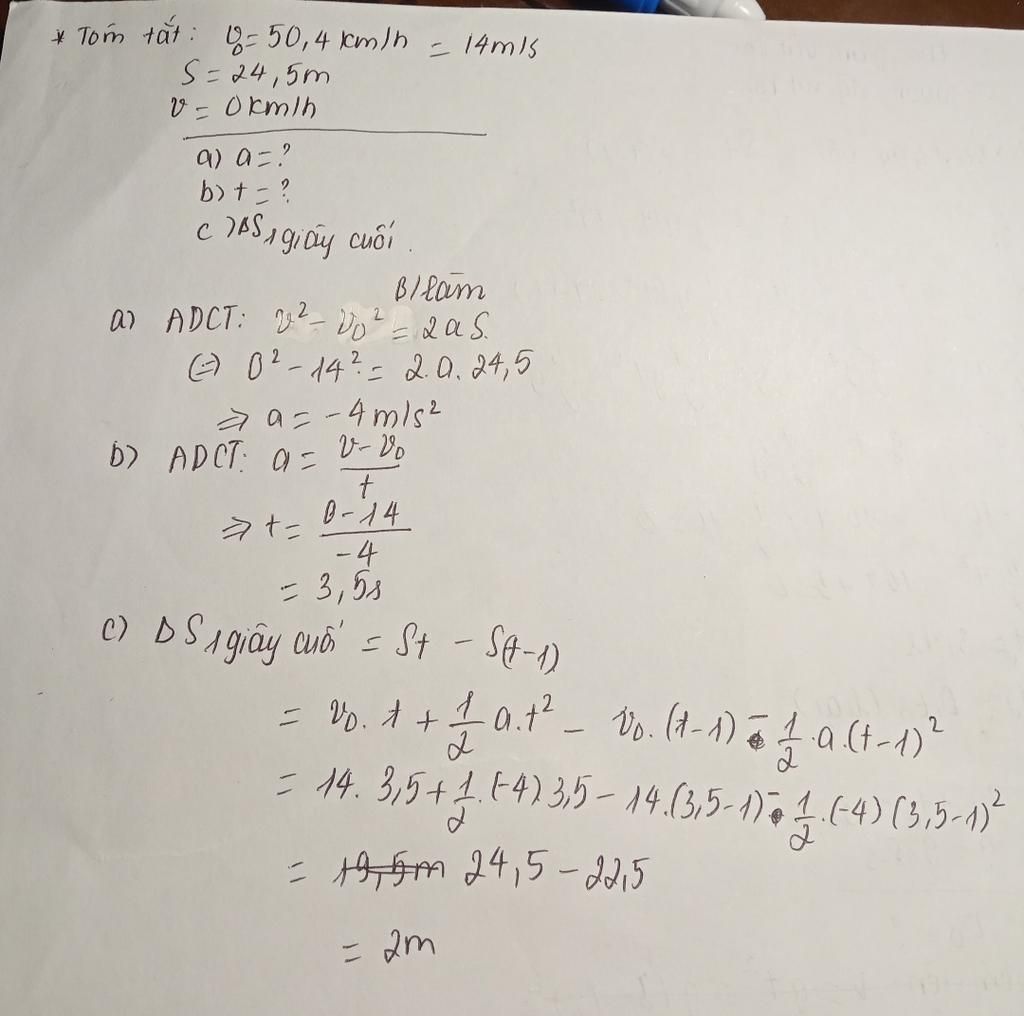 * Tóm tắt: v₀ = 50,4 km/h = 14m/s
S = 24,5m
v = 0 km/h
a) a = ?
b) t = ?
c) ΔS 1 giây cuối.
B/làm
a) ADCT: v² - v₀² = 2aS.
(=) 0² - 14² = 2.a.24,5
=> a = -4 m/s²
b) ADCT: a = (v - v₀)/t
=> t = (0 - 14)/(-4)
= 3,5s
c) ΔS 1 giây cuối = St - S(t-1)
= v₀.t + 1/2 a.t² - v₀.(t-1) - 1/2.a.(t-1)²
= 14. 3,5 + 1/2.(-4).3,5 - 14.(3,5-1) - 1/2.(-4)(3,5-1)²
= 19,5m 24,5 - 22,5
= 2m